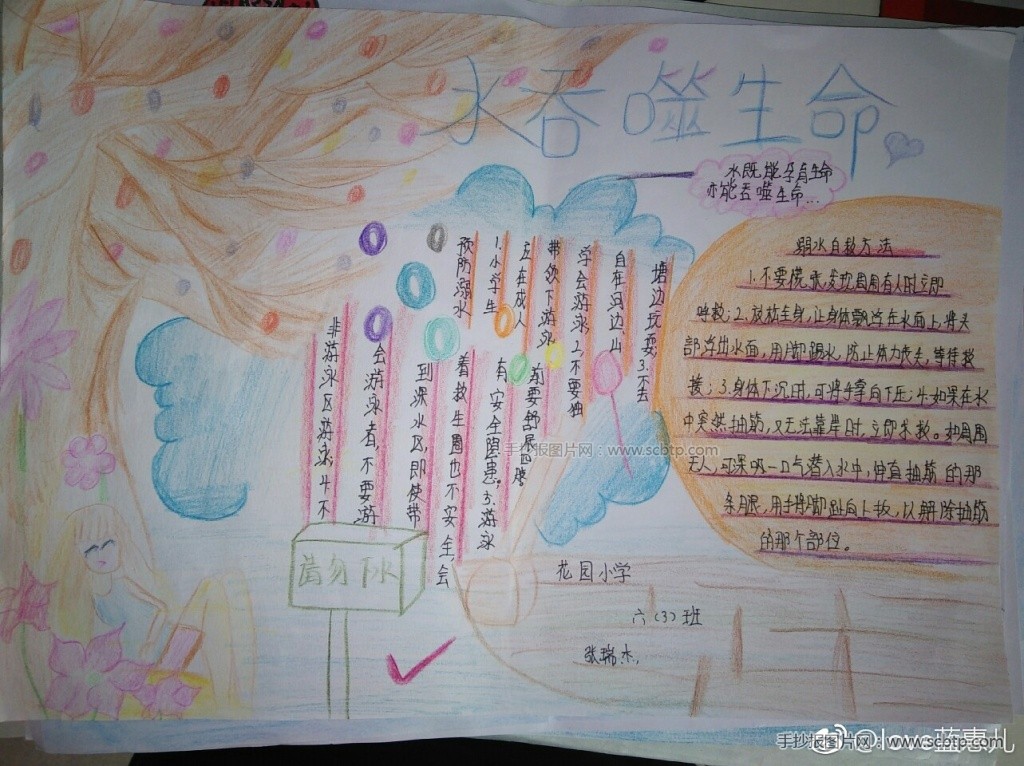 水吞噬生命
水既能孕育生命
亦能吞噬生命...
预防溺水
1.小学生
应在成人
带领下游泳
学会游泳,2不要独
自在河边、山
塘边玩耍;3.不去
非游泳区游泳;4.不
会游泳者,不要游
到深水区,即使带
着救生圈也不安全,会
有安全隐患。5.游泳
前要舒展四肢
溺水自救方法
1.不要慌张,发现周围有人时立即
呼救;2.放松全身,让身体飘浮在水面上,将头
部浮出水面,用脚踢水,防止体力丧失,等待救
援;3.身体下沉时,可将手掌向下压;4.如果在水
中突然抽筋,又无法靠岸时,立即求救。如周围
无人,可深吸一口气潜入水中,伸直抽筋的那
条腿,用手将脚趾向上扳,以解除抽筋
的那个部位。
请勿下水
花园小学
六(3)班
张瑞杰.
手抄报图片网 www.scbtp.com
@love蓝惠儿
手抄报图片网:www.scbtp.com